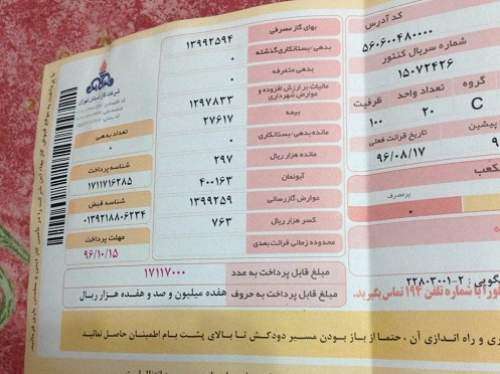 کد آدرس
۵۶۰۶۰۰۴۸۰۰۰۰
شماره سریال کنتور
۱۵۰۷۲۴۲۶
گروه
تعداد واحد
ظرفیت
C
۲۰
۱۰۰
پیشین
تاریخ قرائت فعلی
۹۶/۰۸/۱۷
پرمصرف
۰
بهای گاز مصرفی
۱۳۹۹۲۵۹۴
بدهی/بستانکاری گذشته
۰
بدهی متفرقه
۰
مالیات بر ارزش افزوده و عوارض شهرداری
۱۲۹۷۸۳۳
بیمه
۲۷۶۱۷
مانده بدهی/بستانکاری
۰
مانده هزار ریال
۲۹۷
آبونمان
۴۰۰۱۶۳
عوارض گازرسانی
۱۳۹۹۲۵۹
کسر هزار ریال
۷۶۳
محدوده زمانی قرائت بعدی
تعداد بدهی
۰
شناسه پرداخت
۱۷۱۱۷۱۶۲۸۵
شناسه قبض
۰۱۳۹۲۱۸۸۰۶۲۲۴
مهلت پرداخت
۹۶/۱۰/۱۵
مبلغ قابل پرداخت به عدد
۱۷۱۱۷۰۰۰
مبلغ قابل پرداخت به حروف
هفده میلیون و صد و هفده هزار ریال
۲۲۸۰۳۰۰۱-۲
با شماره تلفن ۱۹۴ تماس بگیرید.
و راه اندازی آن، حتما از باز بودن مسیر دودکش تا بالای پشت بام اطمینان حاصل نمائید